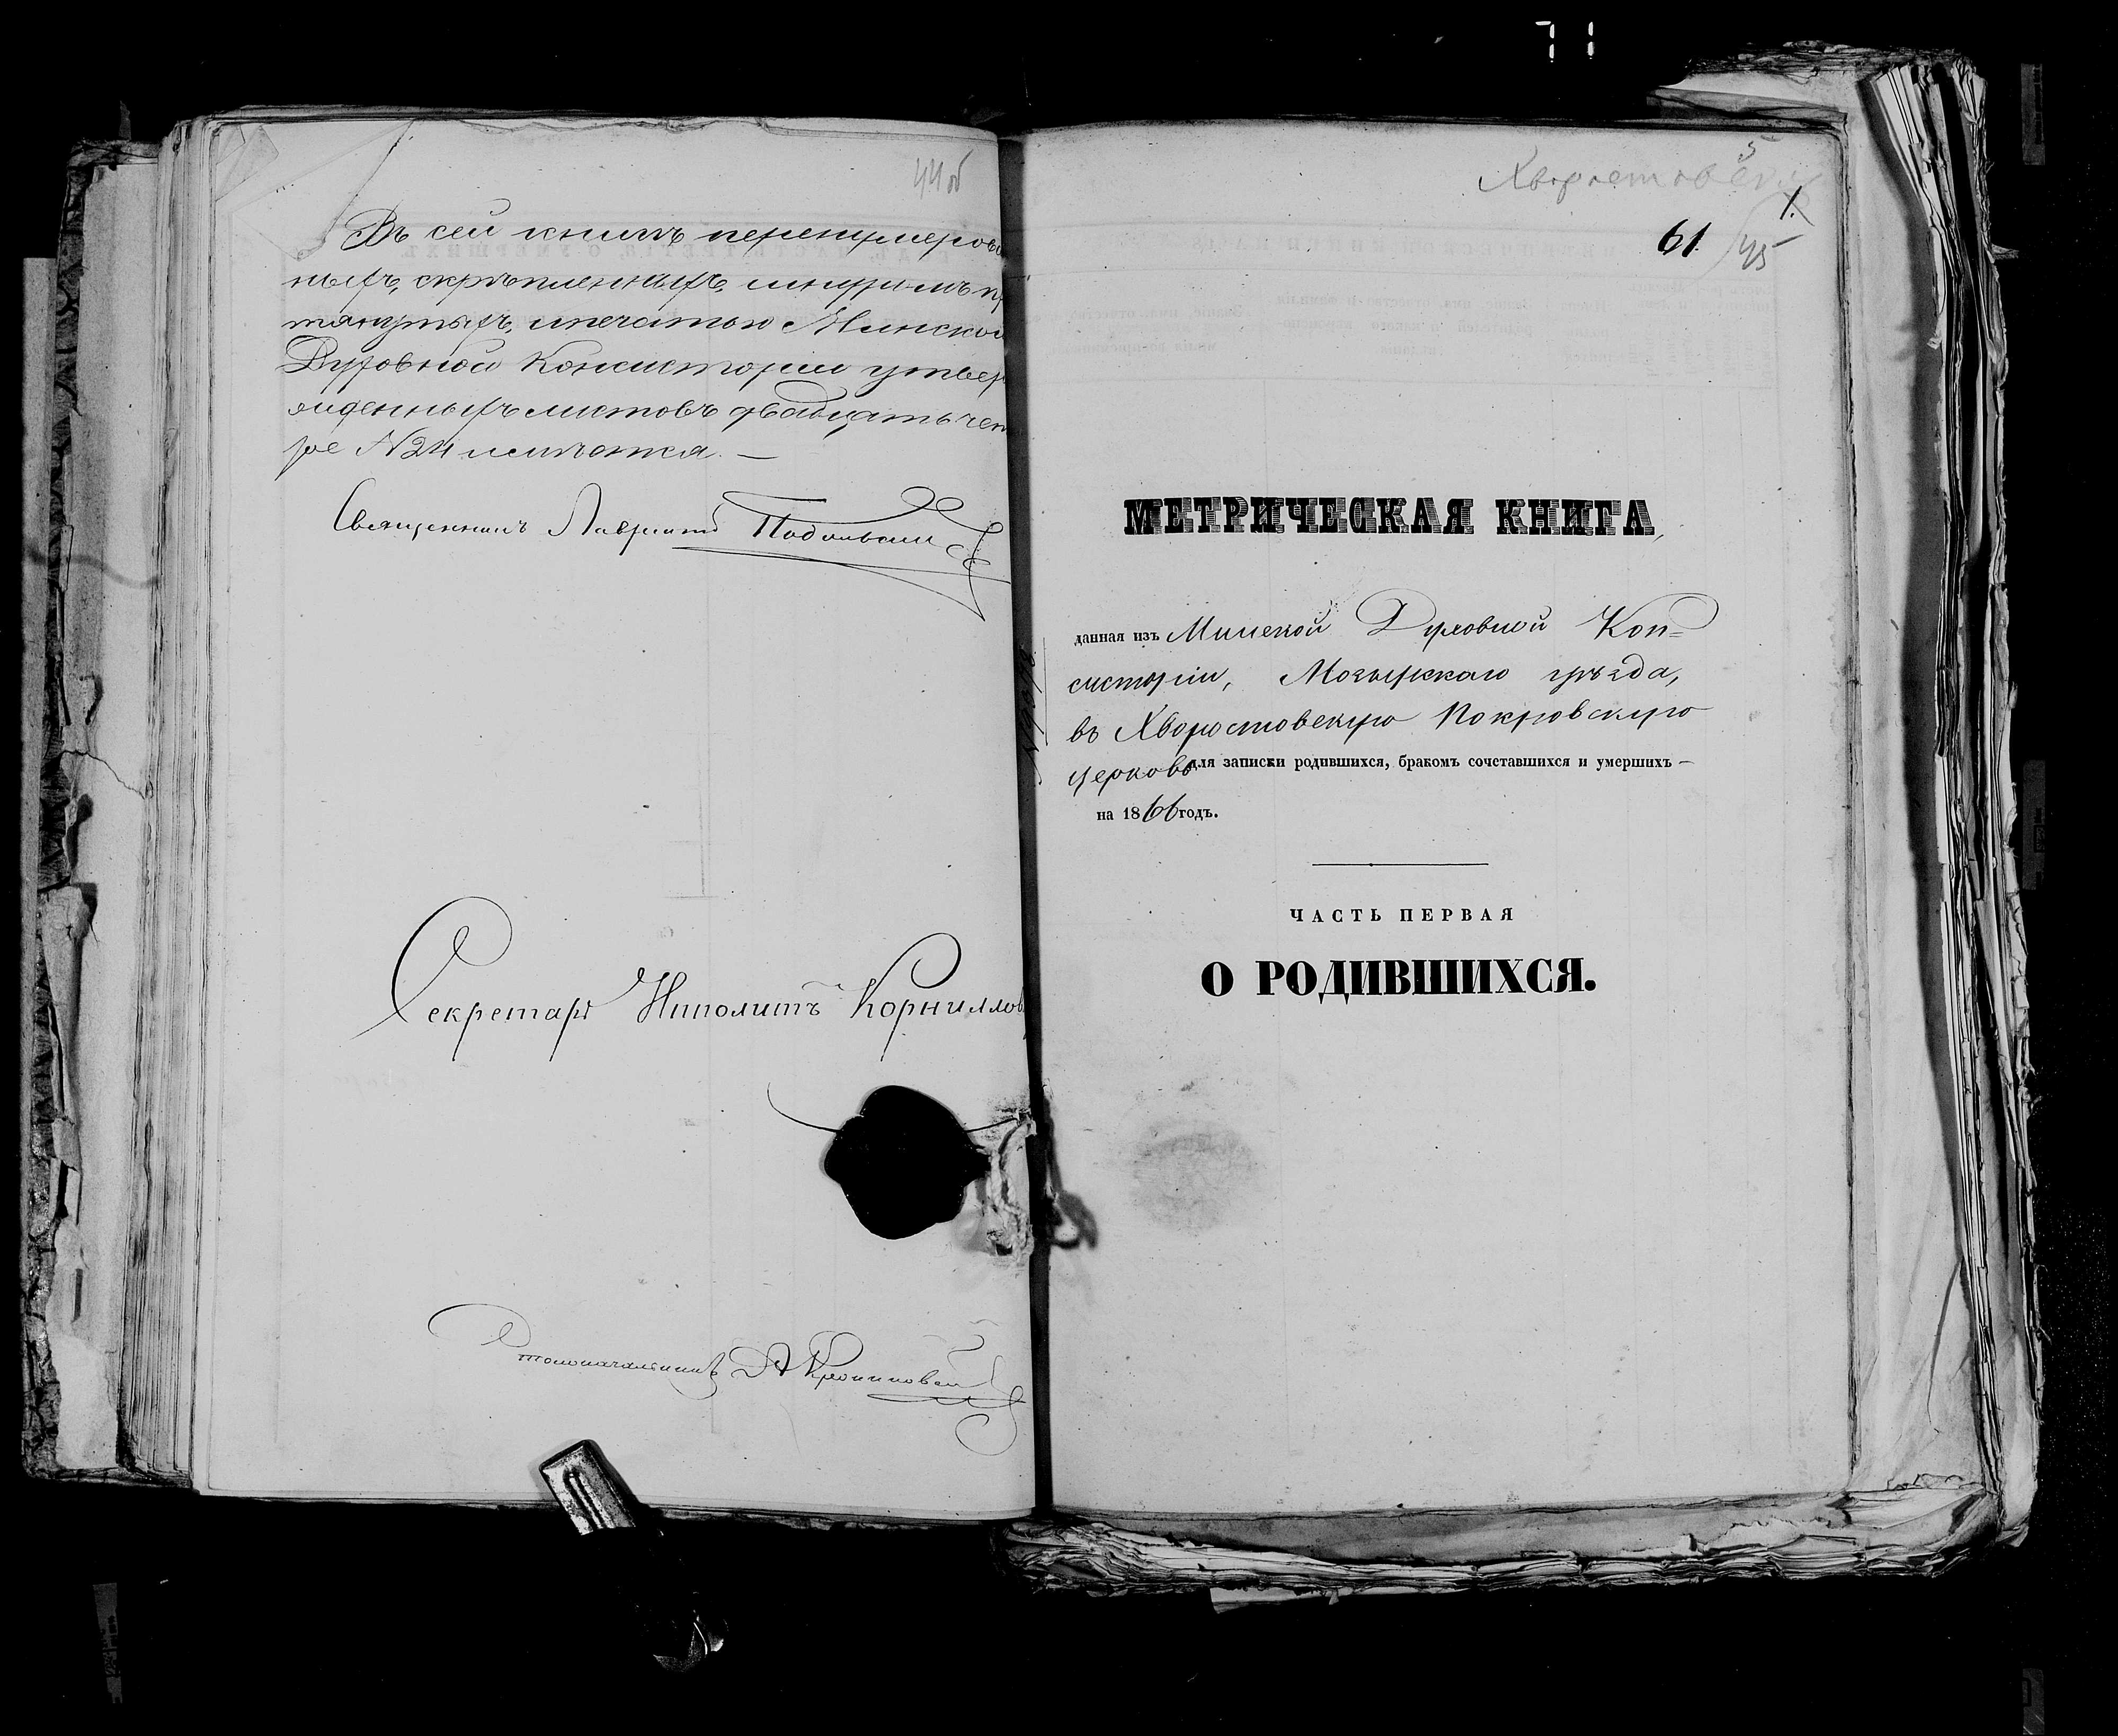 71
44об
Въ сей книгѣ перенумерова
ныхъ, скрѣпленныхъ, шнуромъ пр
тянутыхъ, и печатью Минской
Духовной Консисторіи утвер
жденныхъ листовъ двадцать чет
ре №24 листа
Священникъ Лаврентій Подольскій
Секретарь Ипполитъ Корниллов
Столоначальникъ
Хворостовск
5
1.
61.
45
МЕТРИЧЕСКАЯ КНИГА,
данная изъ Минской Духовной Кон=
систоріи, Мозырскаго уѣзда,
въ Хворостовскую Покровскую
церковь для записки родившихся, бракомъ сочетавшихся и умершихъ —
на 1866 годъ.
ЧАСТЬ ПЕРВАЯ
О РОДИВШИХСЯ.